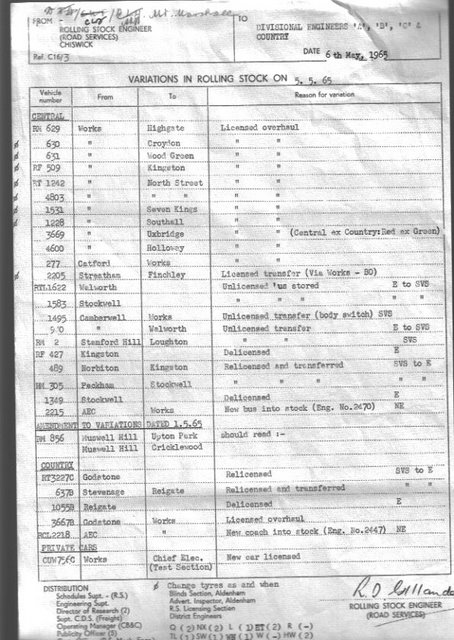 Mr. Marshall
FROM - ROLLING STOCK ENGINEER
(ROAD SERVICES)
CHISWICK
TO DIVISIONAL ENGINEERS 'A', 'B', 'C' &
COUNTRY
Ref. C16/3
DATE 6th May, 1965
VARIATIONS IN ROLLING STOCK ON 5. 5. 65
Vehicle number From To Reason for variation
CENTRAL
RM 629 Works Highgate Licensed overhaul
ø 630 " Croydon " "
ø 631 " Wood Green " "
ø RF 509 " Kingston " "
ø RT 1242 " North Street " "
ø 4803 " " " "
ø 1531 " Seven Kings " "
ø 1228 " Southall " "
3669 " Uxbridge " " (Central ex Country:Red ex Green)
4600 " Holloway " "
277 Catford Works " "
ø 2205 Streatham Finchley Licensed transfer (Via Works - BO)
RTL1622 Walworth Unlicensed 'bus stored E to SVS
1583 Stockwell " " " " "
1495 Camberwell Works Unlicensed transfer (body switch) SVS
" Walworth Unlicensed transfer E to SVS
RM 2 Stamford Hill Loughton " " SVS
RF 427 Kingston Delicensed E
489 Norbiton Kingston Relicensed and transferred SVS to E
RM 305 Peckham Stockwell " " " "
1349 Stockwell Delicensed E
2215 AEC Works New bus into stock (Eng. No.2470) NE
AMENDMENT TO VARIATIONS DATED 1.5.65
RM 856 Muswell Hill Upton Park should read :-
Muswell Hill Cricklewood
COUNTRY
RT3227C Godstone Relicensed SVS to E
637B Stevenage Reigate Relicensed and transferred " "
1055B Reigate Delicensed E
3667B Godstone Works Licensed overhaul
RCL2218 AEC " New coach into stock (Eng. No.2447) NE
PRIVATE CARS
CUW756C Works Chief Elec. New car licensed
(Test Section)
DISTRIBUTION
Schedules Supt. - (R.S.)
Engineering Supt.
Director of Research (2)
Supt. C.D.S. (Freight)
Operating Manager (CB&C)
Publicity Officer (3)
ø Change tyres as and when
Blinds Section, Aldenham
Advert. Inspector, Aldenham
R.S. Licensing Section
District Engineers
Q (2) NX (2) L (1) ET (2) R (-)
TL (1) SW (1) W (-) HW (2)
ROLLING STOCK ENGINEER
(ROAD SERVICES)